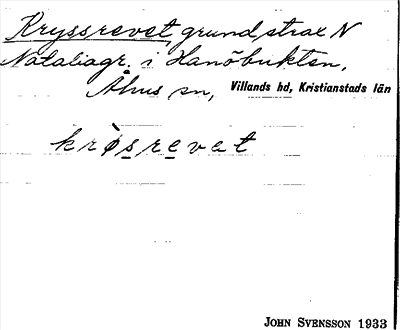 Kryssrevet, grund strax N
Nataliagr. i Hanöbukten,
Åhus sn, Villands hd, Kristianstads län
krø̀srevet
JOHN SVENSSON 1933